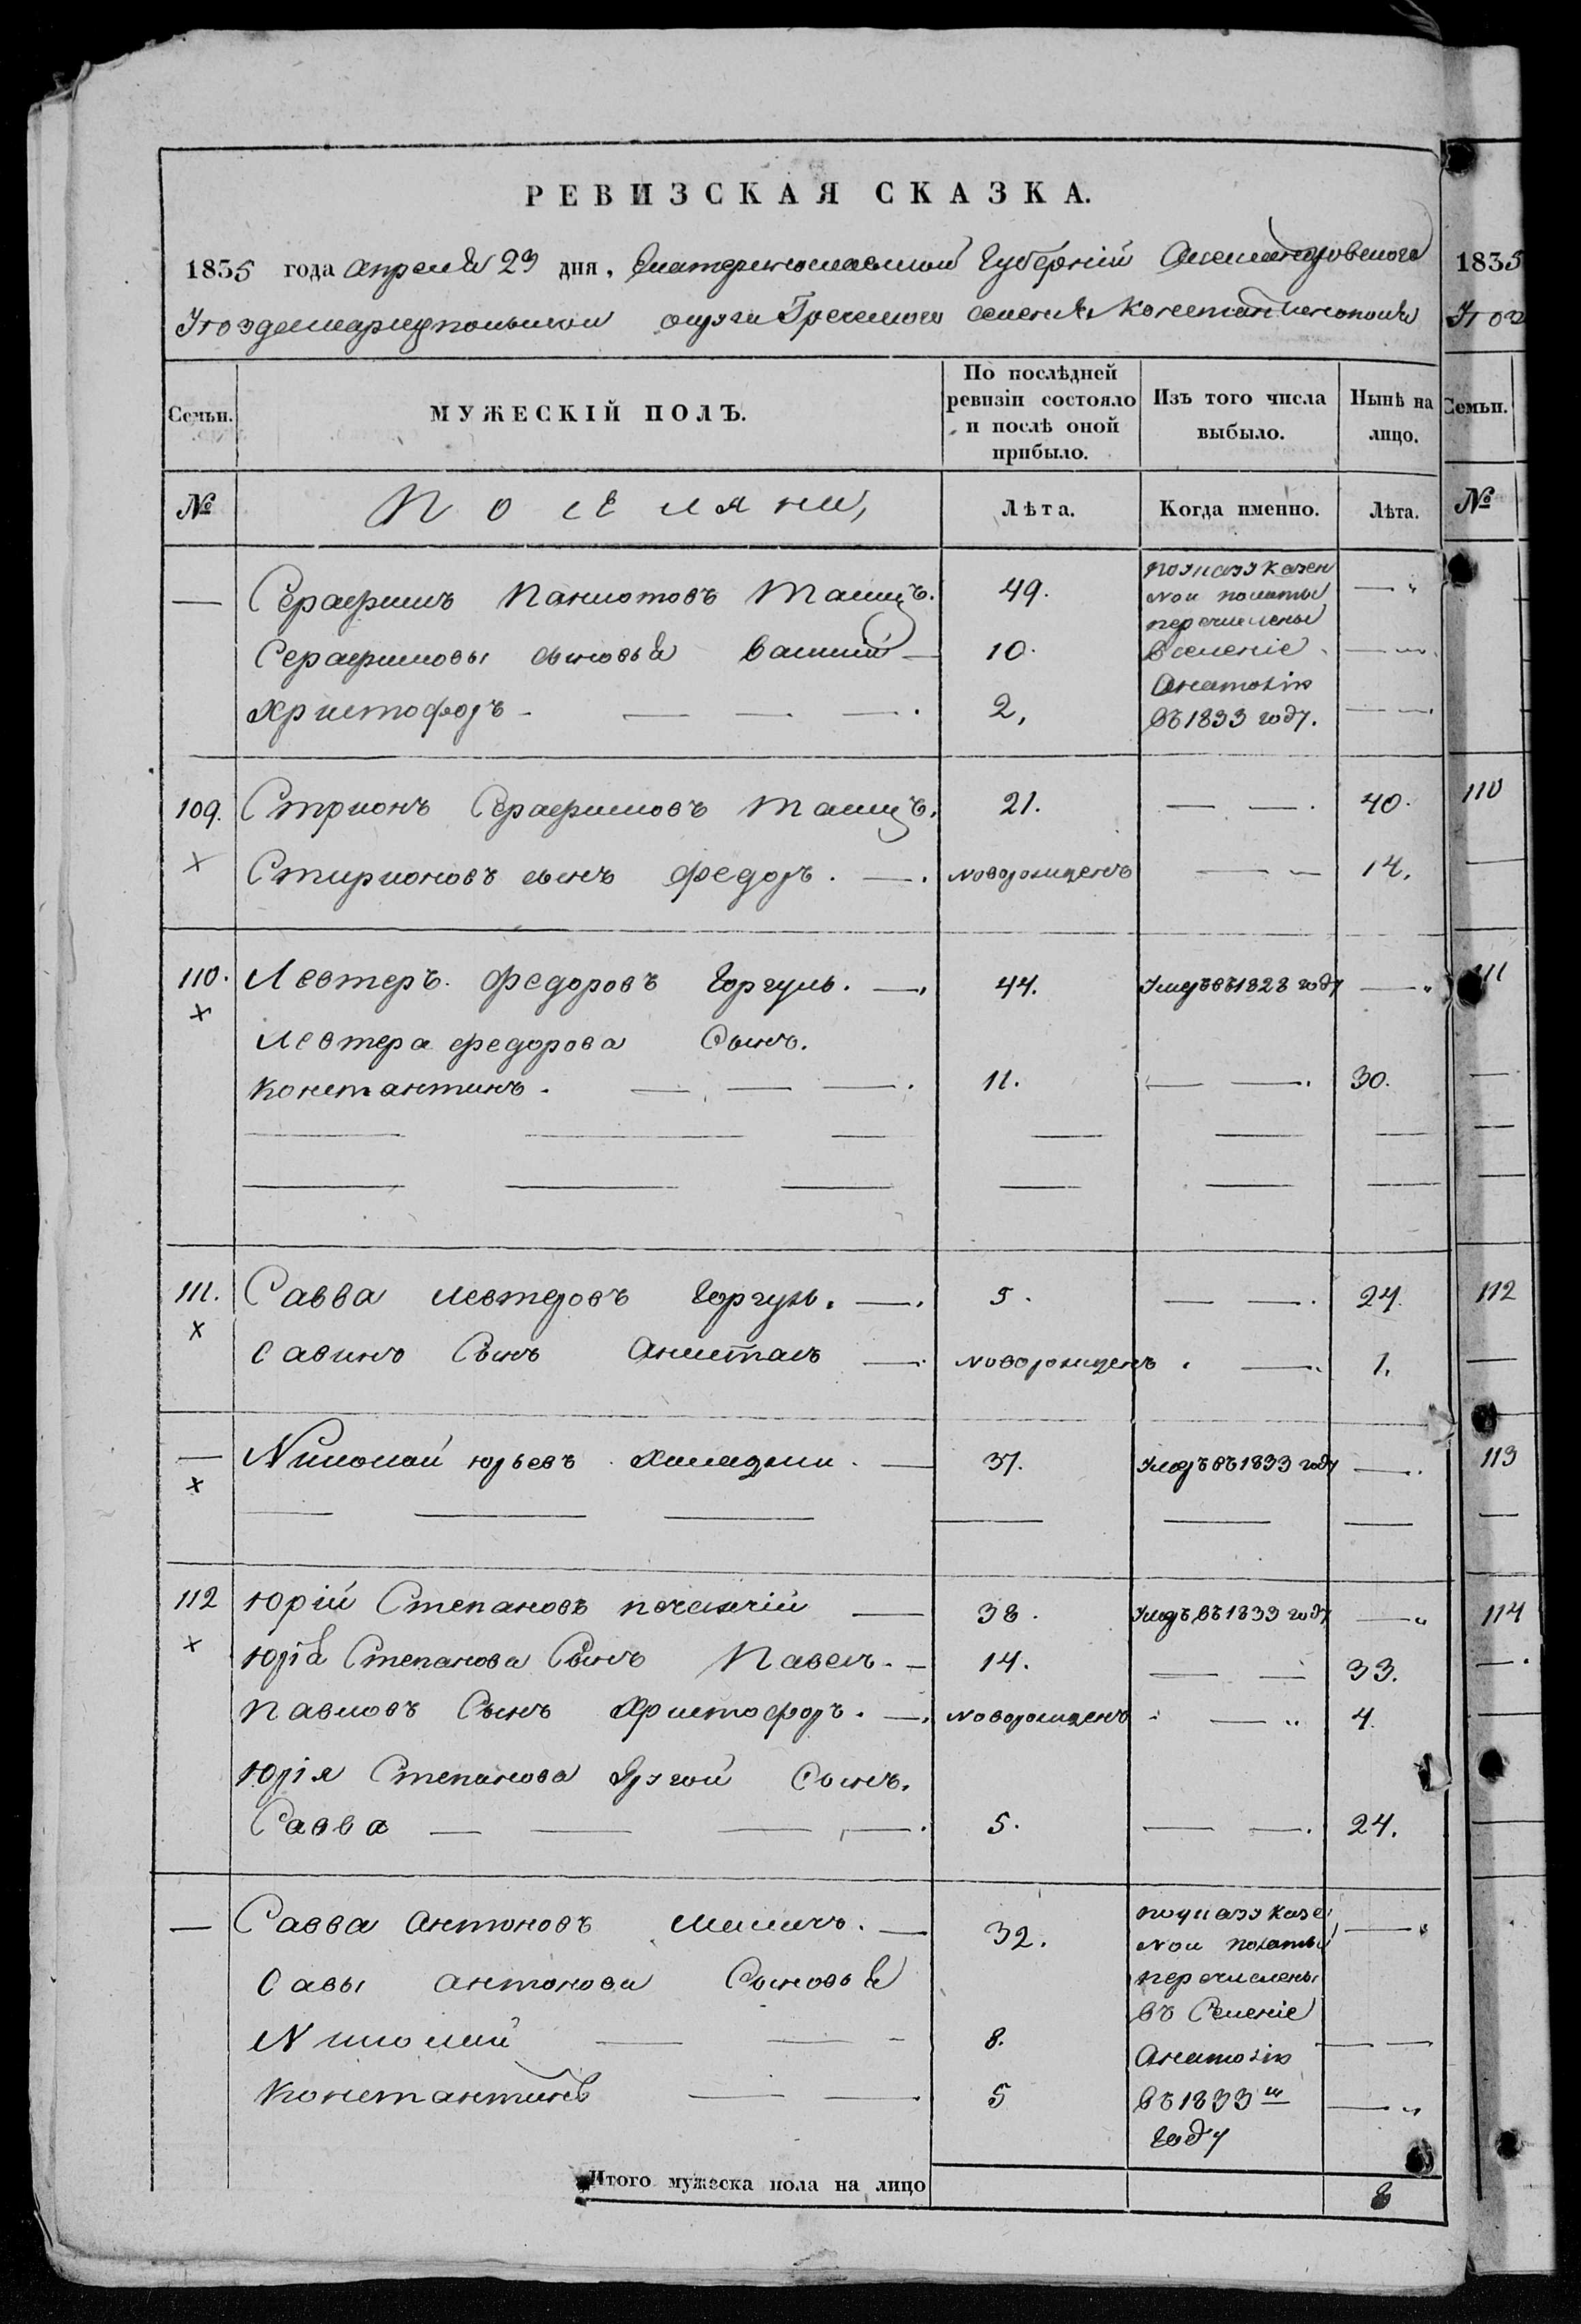 РЕВИЗСКАЯ СКАЗКА.
1835 года апреля 23 дня, Екатеринославской Губерніи Александровскаго
Уезда Мариупольскои округи Греческого селения Константинополя
Семьи. МУЖЕСКІЙ ПОЛЪ. По послѣдней ревизіи состояло и послѣ оной прибыло. Изъ того числа выбыло. Нынѣ на лицо.
№ Поселяни, Лѣта. Когда именно. Лѣта.
— Серафимъ Паниотовъ Ташчъ. 49. по указу казен
ной полаты
перечислены
Серафимовы сыновья Василий — 10. в селение
Анатолія
Христофоръ — — — —. 2, въ 1833 году.
109. Стрионъ Серафимовъ Ташчъ. 21. — —. 40.
х Стирионовъ сынъ Федоръ. —. новорожденъ — — 14.
110. Левтеръ Федоровъ Горгуль. —. 44. Умеръ въ 1828 году —
х Левтера Федорова Сынъ.
Константинъ. — — —. 11. — —. 30.
111. Савва Левтеровъ Горгуль. —. 5. — —. 24.
х Савинъ Сынъ Анистасъ —. новорожденъ. —. 1.
— Николай Юрьевъ Халаджи. — 37. Умеръ въ 1833 году —.
х
112 Юрій Степановъ — 38. Умеръ въ 1833 году —
х Юрія Степанова Сынъ Павелъ. — 14. — — 33.
Павловъ Сынъ Христофоръ. —. новорожденъ — 4.
Юрія Степанова другой Сынъ.
Савва — — — —. 5. — —. 24.
— Савва Антоновъ —  32. по указу казе
ной полаты
Савы Антонова Сыновья перечислены
въ Селение
Николай — — — 8. Анатолія — —
Константинъ — —. 5 въ 1833 м —
году
Итого мужеска пола на лицо 8
1835
Уез
Семьи.
№
110
111
112
113
114